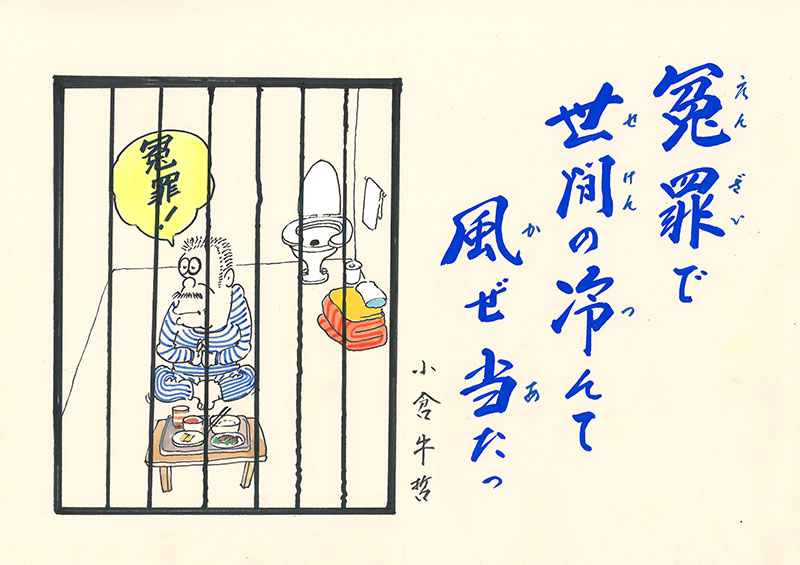 冤罪で
えんざい
世間の冷んて
せけん つ
風ぜ当たっ
か あ
小倉牛哲
冤罪！